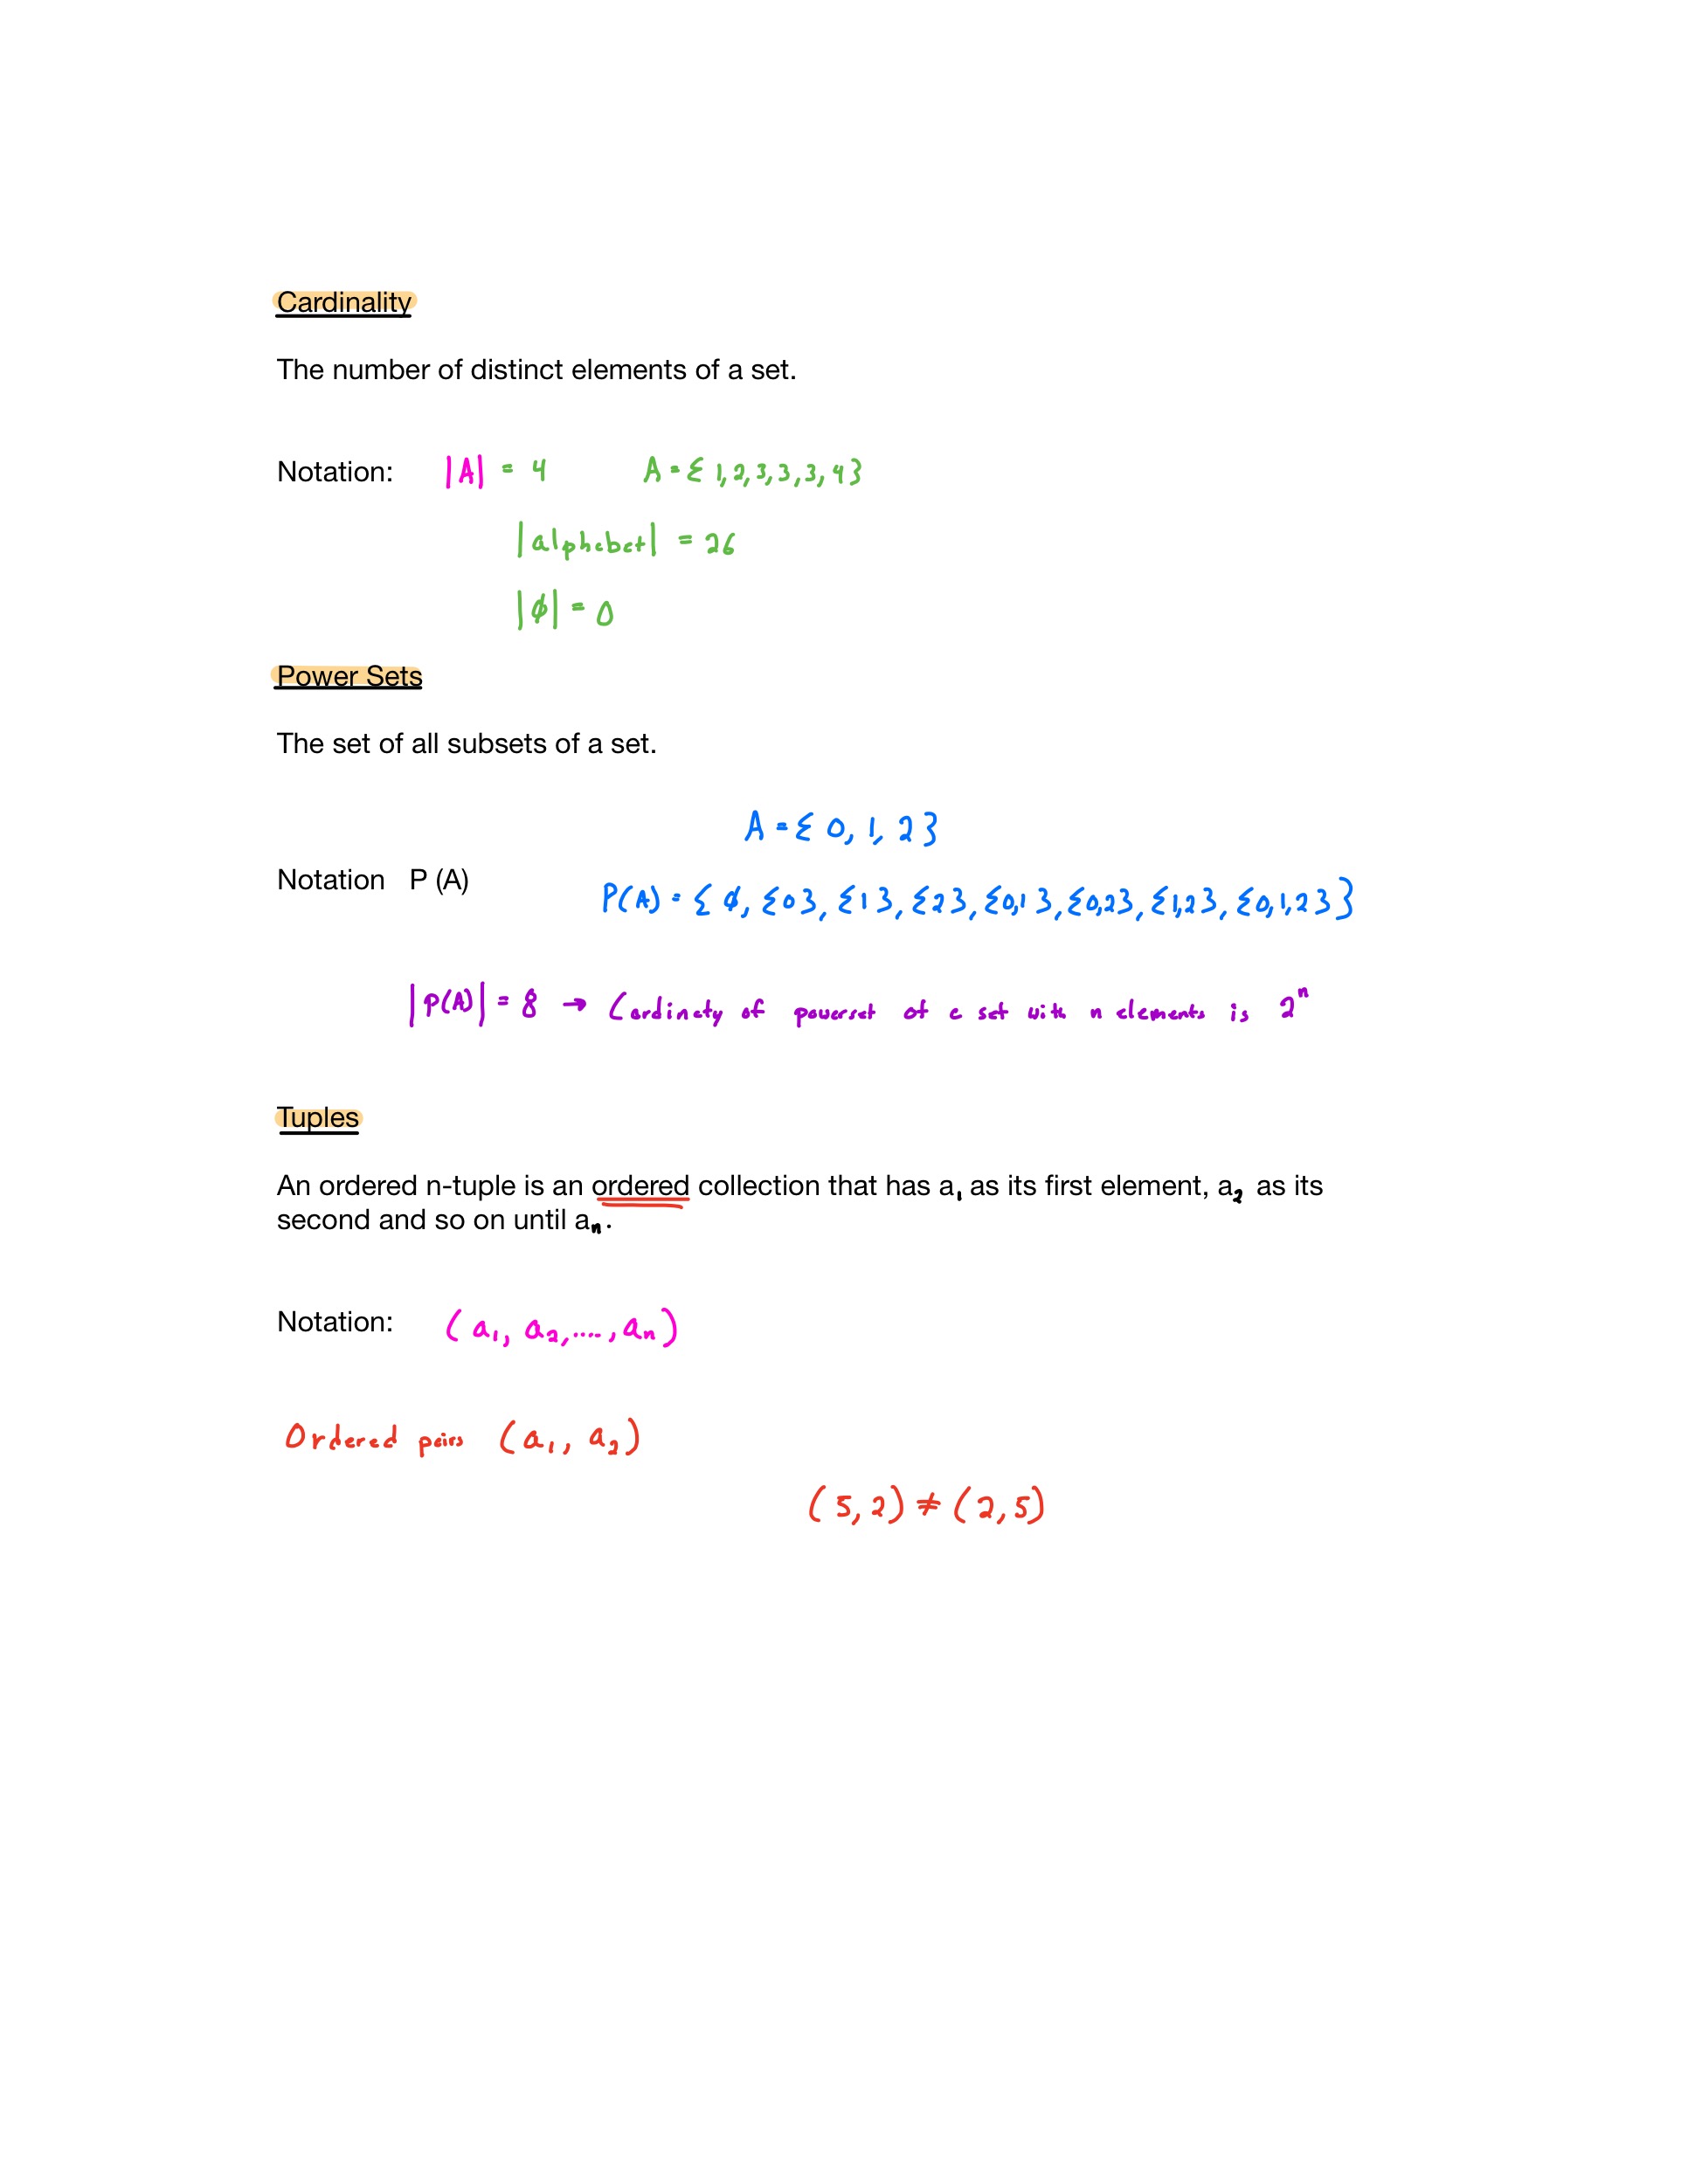 Cardinality
The number of distinct elements of a set.
Notation: |A| = 4 A = { 1, 2, 3, 3, 3, 4 }
|alphabet| = 26
|ϕ| = 0
Power Sets
The set of all subsets of a set.
A = { 0, 1, 2 }
Notation P (A) P(A) = { ϕ, {0}, {1}, {2}, {0,1}, {0,2}, {1,2}, {0,1,2} }
|P(A)| = 8 → Cardinaty of powerset of a set with n elements is 2ⁿ
Tuples
An ordered n-tuple is an ordered collection that has a₁ as its first element, a₂ as its
second and so on until aₙ.
Notation: (a₁, a₂, ...., aₙ)
Ordered pairs (a₁, a₂)
(5, 2) ≠ (2, 5)